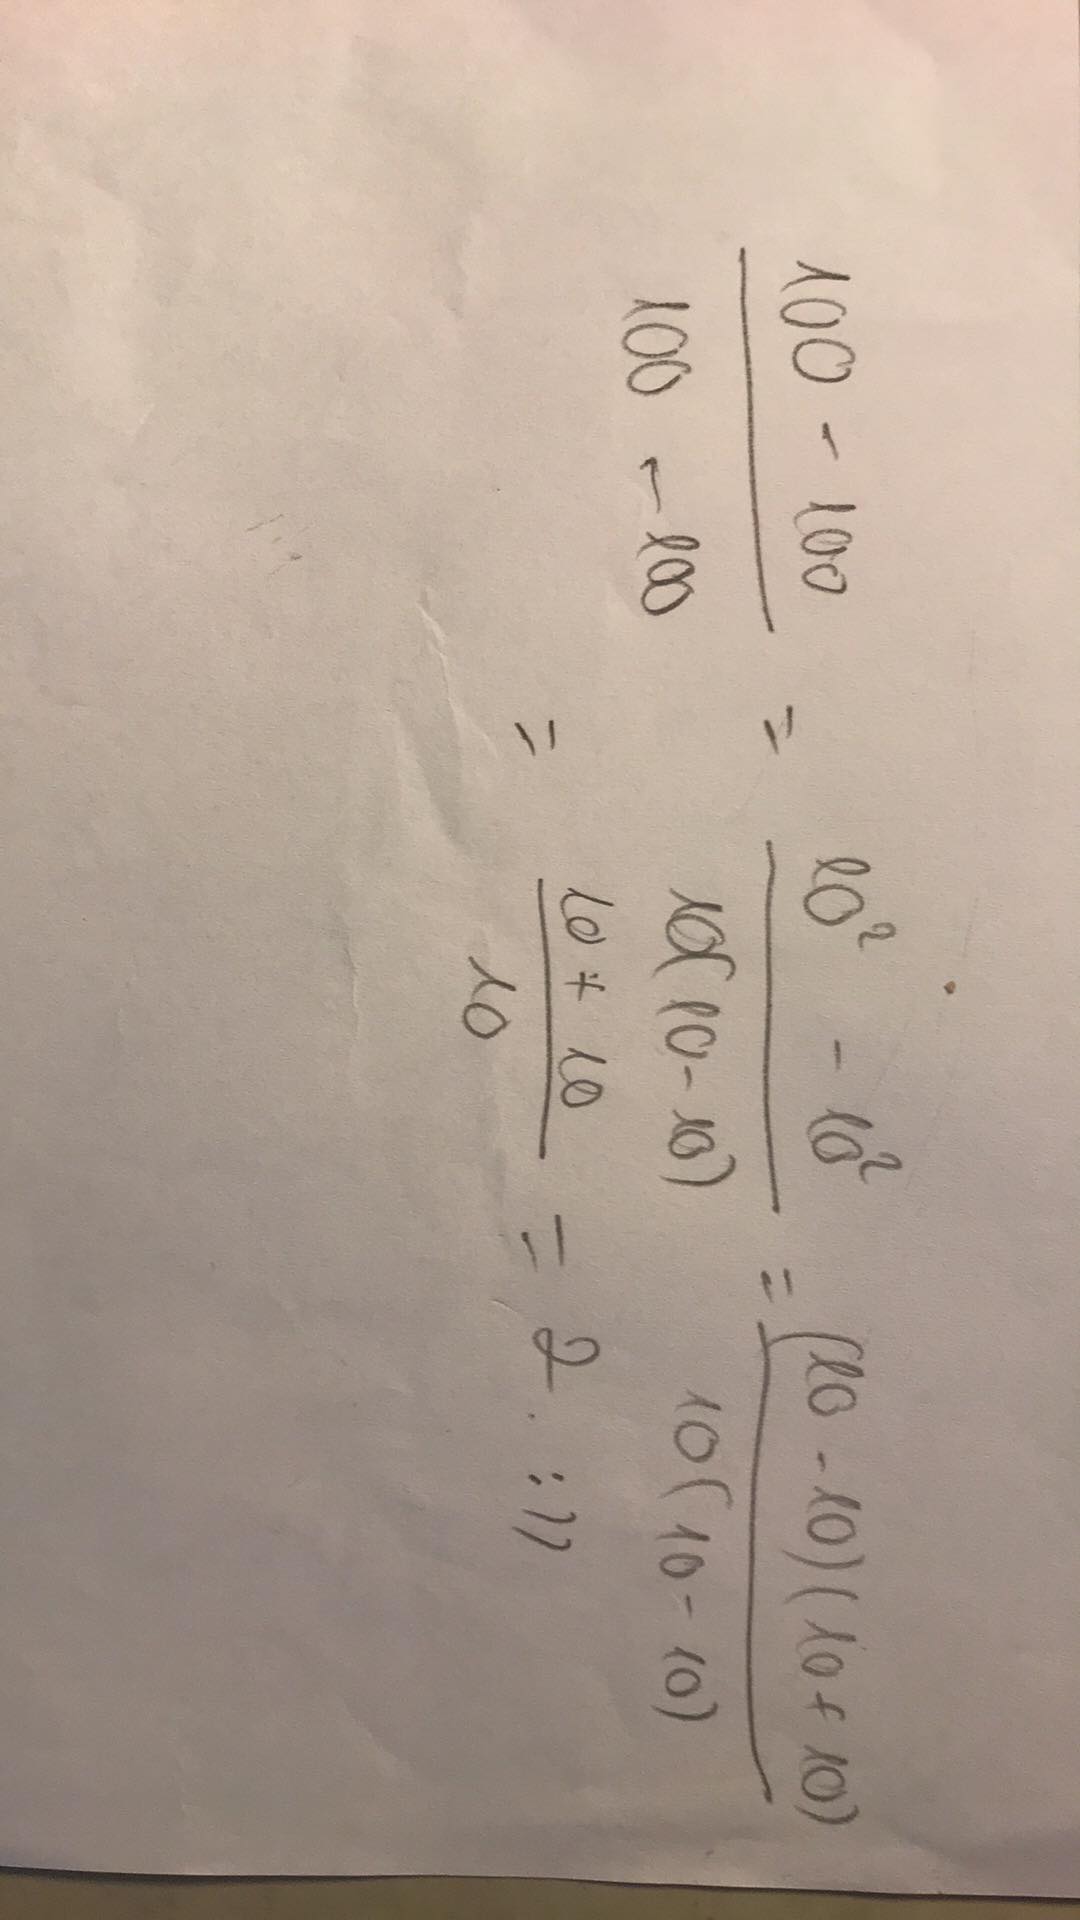 100 - 100 = 10² - 10² = (10 - 10)(10 + 10)
100 - 100 10(10 - 10) 10(10 - 10)
= 10 + 10 = 2. :))
10